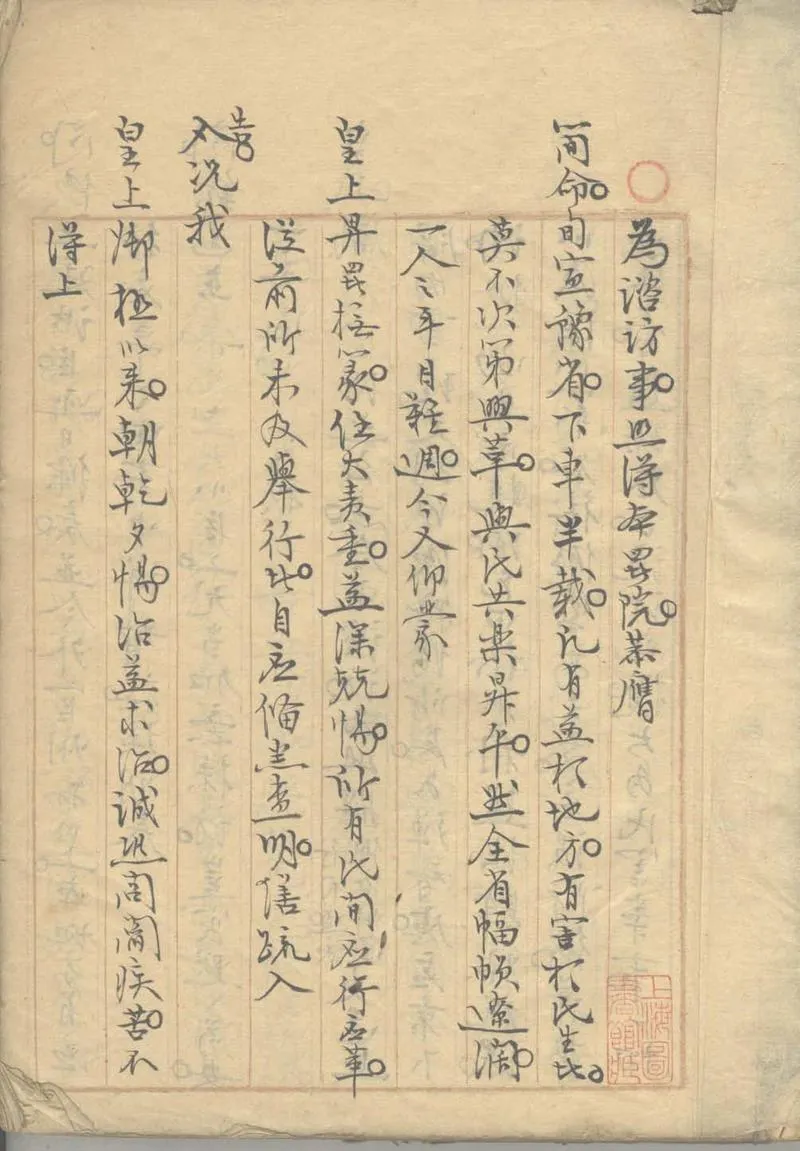 為諮訪事。照得本署院。恭膺
簡命。旬宣豫省。下車半載。凡有益於地方。有害於民生者。
莫不次第興革。與民共樂昇平。然全省幅幀遼濶。
一人之耳目難週。今又仰蒙
皇上昇署撫篆。任大責重。益深兢惕。所有民間應行應革。
從前所未及舉行者。自應俻悉查明。繕疏入
告。又况我
皇上御極以來。朝乾夕惕。治益求治。誠恐閭閻疾苦。不
得上
上海圖
書館藏